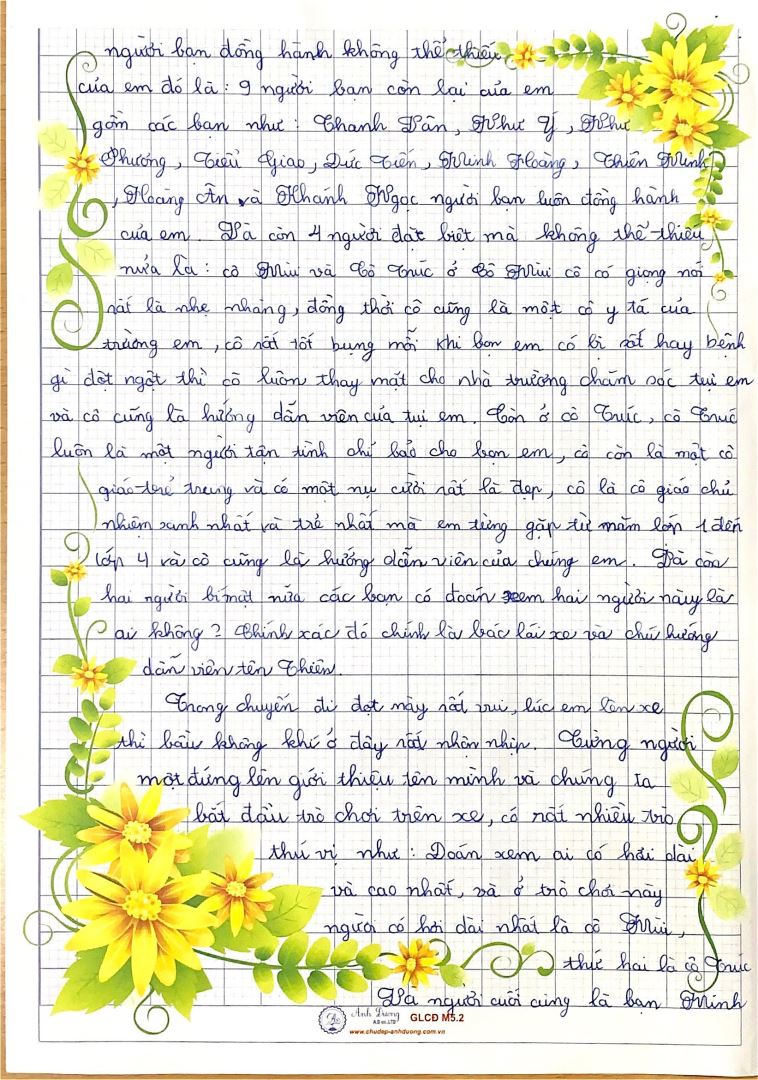 người bạn đồng hành không thể thiếu
của em đó là : 9 người bạn còn lại của em
gồm các bạn như : Thanh Vân, Như Ý, Như
Phương, Tiểu Giao, Đức Tiến, Minh Hoàng, Thiên Minh
, Hoàng Ân và Khánh Ngọc người bạn luôn đồng hành
của em. Và còn 4 người đặt biệt mà không thể thiếu
nửa là : cô Mùi và Cô Trúc ở Cô Mùi cô có giọng nói
rất là nhẹ nhàng, đồng thời cô cũng là một cô y tá của
trường em, cô rất tốt bụng mỗi khi bọn em có bị sốt hay bệnh
gì đột ngột thì cô luôn thay mặt cho nhà trường chăm sóc tụi em
và cô cũng là hướng dẫn viên của tụi em. Còn ở cô Trúc, cô Trúc
luôn là một người tận tình chỉ bảo cho bọn em, cô còn là một cô
giáo trẻ trung và có một nụ cười rất là đẹp, cô là cô giáo chủ
nhiệm xanh nhất và trẻ nhất mà em từng gặp từ mầm lớp 1 đến
lớp 4 và cô cũng là hướng dẫn viên của chúng em. Và còn
hai người bí mật nữa các bạn có đoán xem hai người này là
ai không? Chính xác đó chính là bác lái xe và chú hướng
dẫn viên tên Thiên.
Trong chuyến đi đợt này rất vui, lúc em lên xe
thì bầu không khí ở đây rất nhộn nhịp. Từng người
một đứng lên giới thiệu tên mình và chúng ta
bắt đầu trò chơi trên xe, có rất nhiều trò
thú vị như : Đoán xem ai có hơi dài
và cao nhất, và ở trò chơi này
người có hơi dài nhất là cô Mùi,
thứ hai là cô Trúc
Và người cuối cùng là bạn Minh
Ánh Dương
A.D co.,LTD
GLCĐ M5.2
www.chudep-anhduong.com.vn